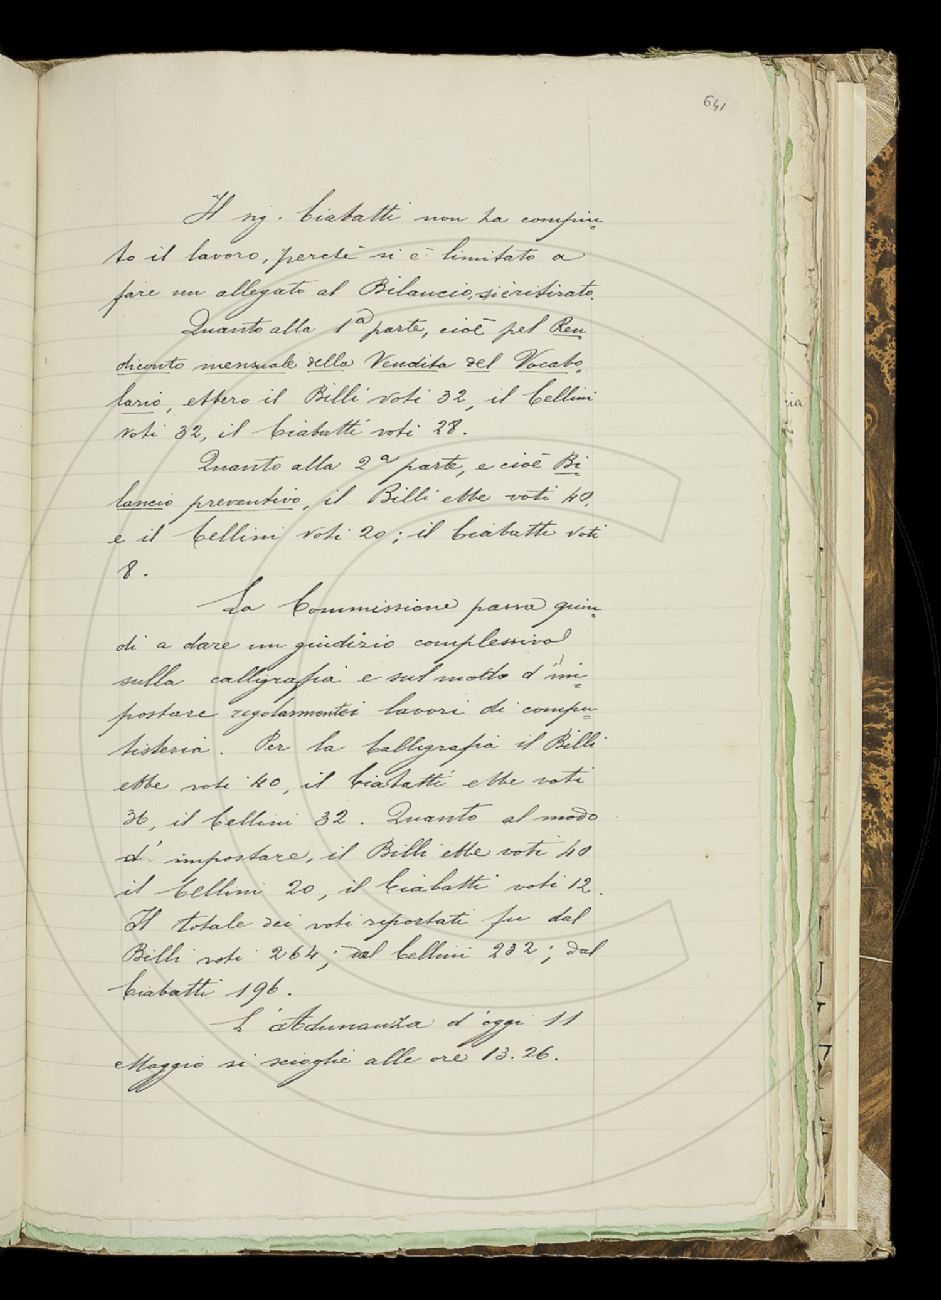 641
Il sig. Ciabatti non ha compiu=
to il lavoro, perchè si è limitato a
fare un allegato al Bilancio, si è ritirato.
Quanto alla 1ª parte, cioè pel Ren
diconto mensuale della Vendita del Vocabo=
lario, ebbero il Billi voti 32, il Cellini
voti 32, il Ciabatti voti 28.
Quanto alla 2ª parte, e cioè Bi=
lancio preventivo, il Billi ebbe voti 40,
e il Cellini voti 20; il Ciabatti voti
8.
La Commissione passa quin=
di a dare un giudizio complessivo
sulla calligrafia e sul modo d'im=
postare regolarmente i lavori di compu=
tisteria. Per la Calligrafia il Billi
ebbe voti 40, il Ciabatti ebbe voti
36, il Cellini 32. Quanto al modo
d'impostare, il Billi ebbe voti 40
il Cellini 20, il Ciabatti voti 12.
Il totale dei voti riportati fu dal
Billi voti 264; dal Cellini 232; dal
Ciabatti 196.
L'Adunanza d'oggi 11
Maggio si scioglie alle ore 13.26.